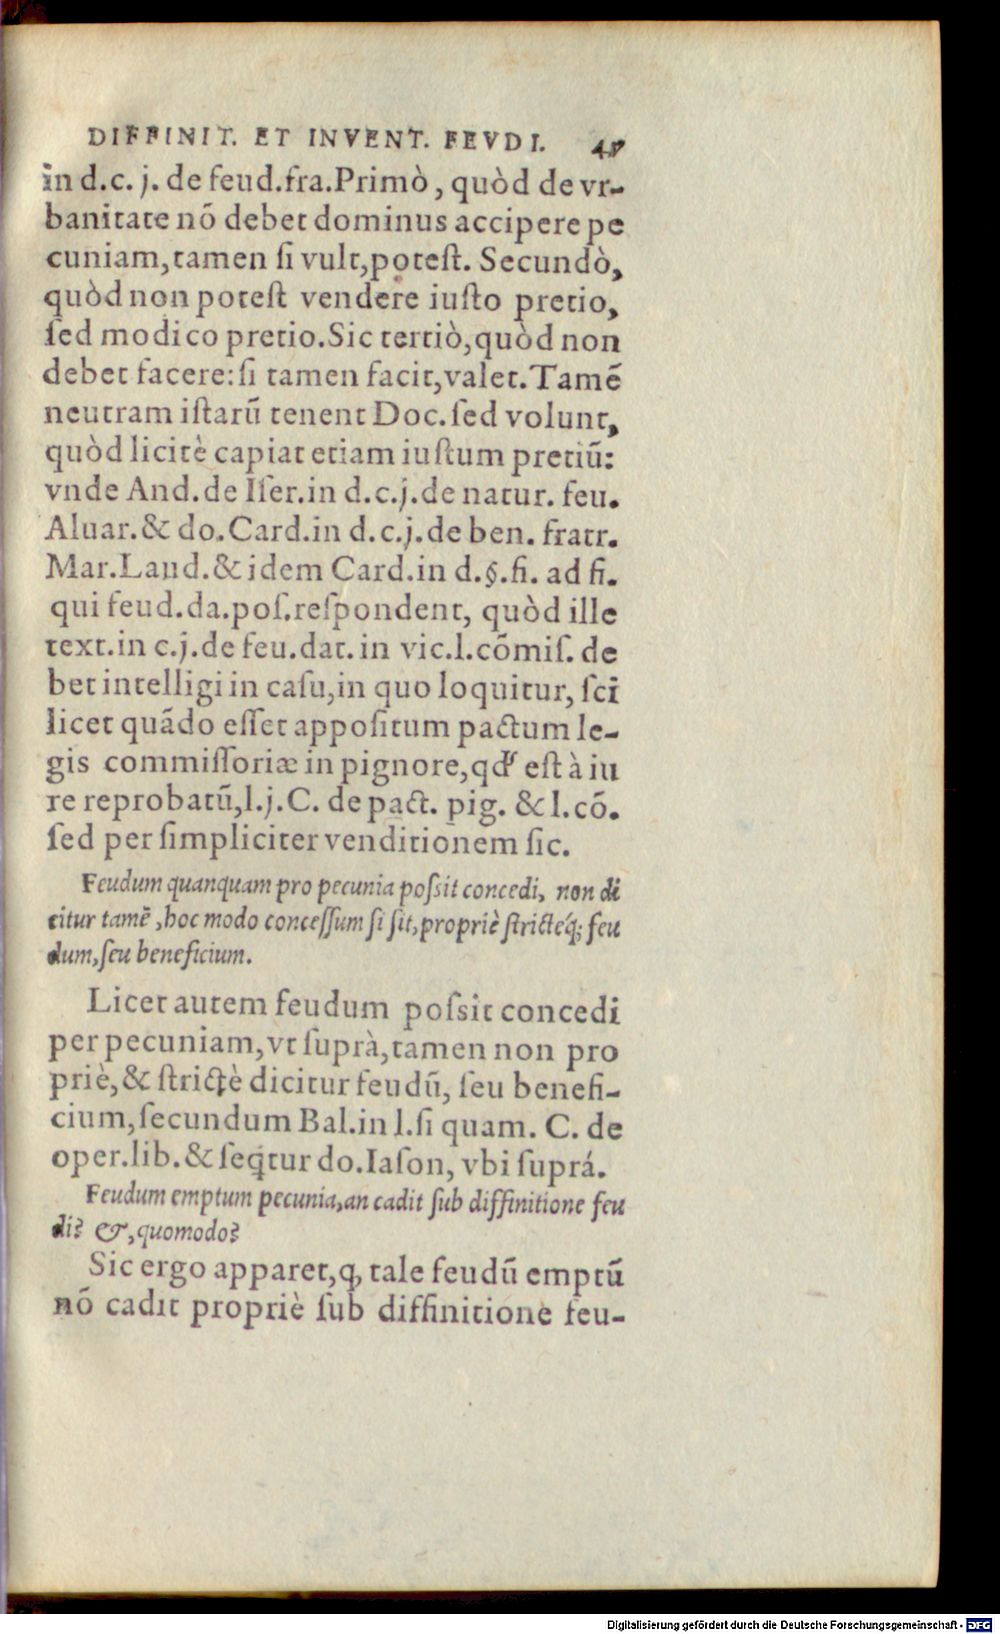 DIFFINIT. ET INVENT. FEVDI.
in d.c. j. de feud.fra.Primò, quòd de vr-
banitate nõ debet dominus accipere pe
cuniam,tamen ſi vult,poteſt. Secundò,
quòd non poteſt vendere iuſto pretio,
ſed modico pretio.Sic tertiò,quòd non
debet facere:ſi tamen facit,valet.Tamẽ
neutram iſtarũ tenent Doc.ſed volunt,
quòd licitè capiat etiam iuſtum pretiũ:
vnde And.de Iſer.in d.c.j.de natur. feu.
Aluar.& do.Card.in d.c.j.de ben. fratr.
Mar.Laud.& idem Card.in d.§.fi. ad fi.
qui feud.da.poſ.reſpondent, quòd ille
text.in c.j.de feu.dat. in vic.l.cõmiſ. de
bet intelligi in caſu,in quo loquitur, ſci
licet quãdo eſſet appoſitum pactum le-
gis commiſſoriæ in pignore,qđ eſt à iu
re reprobatũ,l.j.C. de pact. pig. & l.cõ.
ſed per ſimpliciter venditionem ſic.
Feudum quanquam pro pecunia poſsit concedi, non di
citur tamẽ ,hoc modo conceſſum ſi ſit,propriè ſtrictéq; feu
dum,ſeu beneficium.
Licet autem feudum poſsit concedi
per pecuniam,vt ſuprà,tamen non pro
priè,& ſtrictè dicitur feudũ, ſeu benefi-
cium,ſecundum Bal.in l.ſi quam. C. de
oper.lib.& ſeqtur do.Iaſon, vbi ſuprá.
Feudum emptum pecunia,an cadit ſub diffinitione feu
di? &,quomodo?
Sic ergo apparet,ꝗ, tale feudũ emptũ
nõ cadit propriè ſub diffinitione feu-
Digitalisierung gefördert durch die Deutsche Forschungsgemeinschaft - DFG